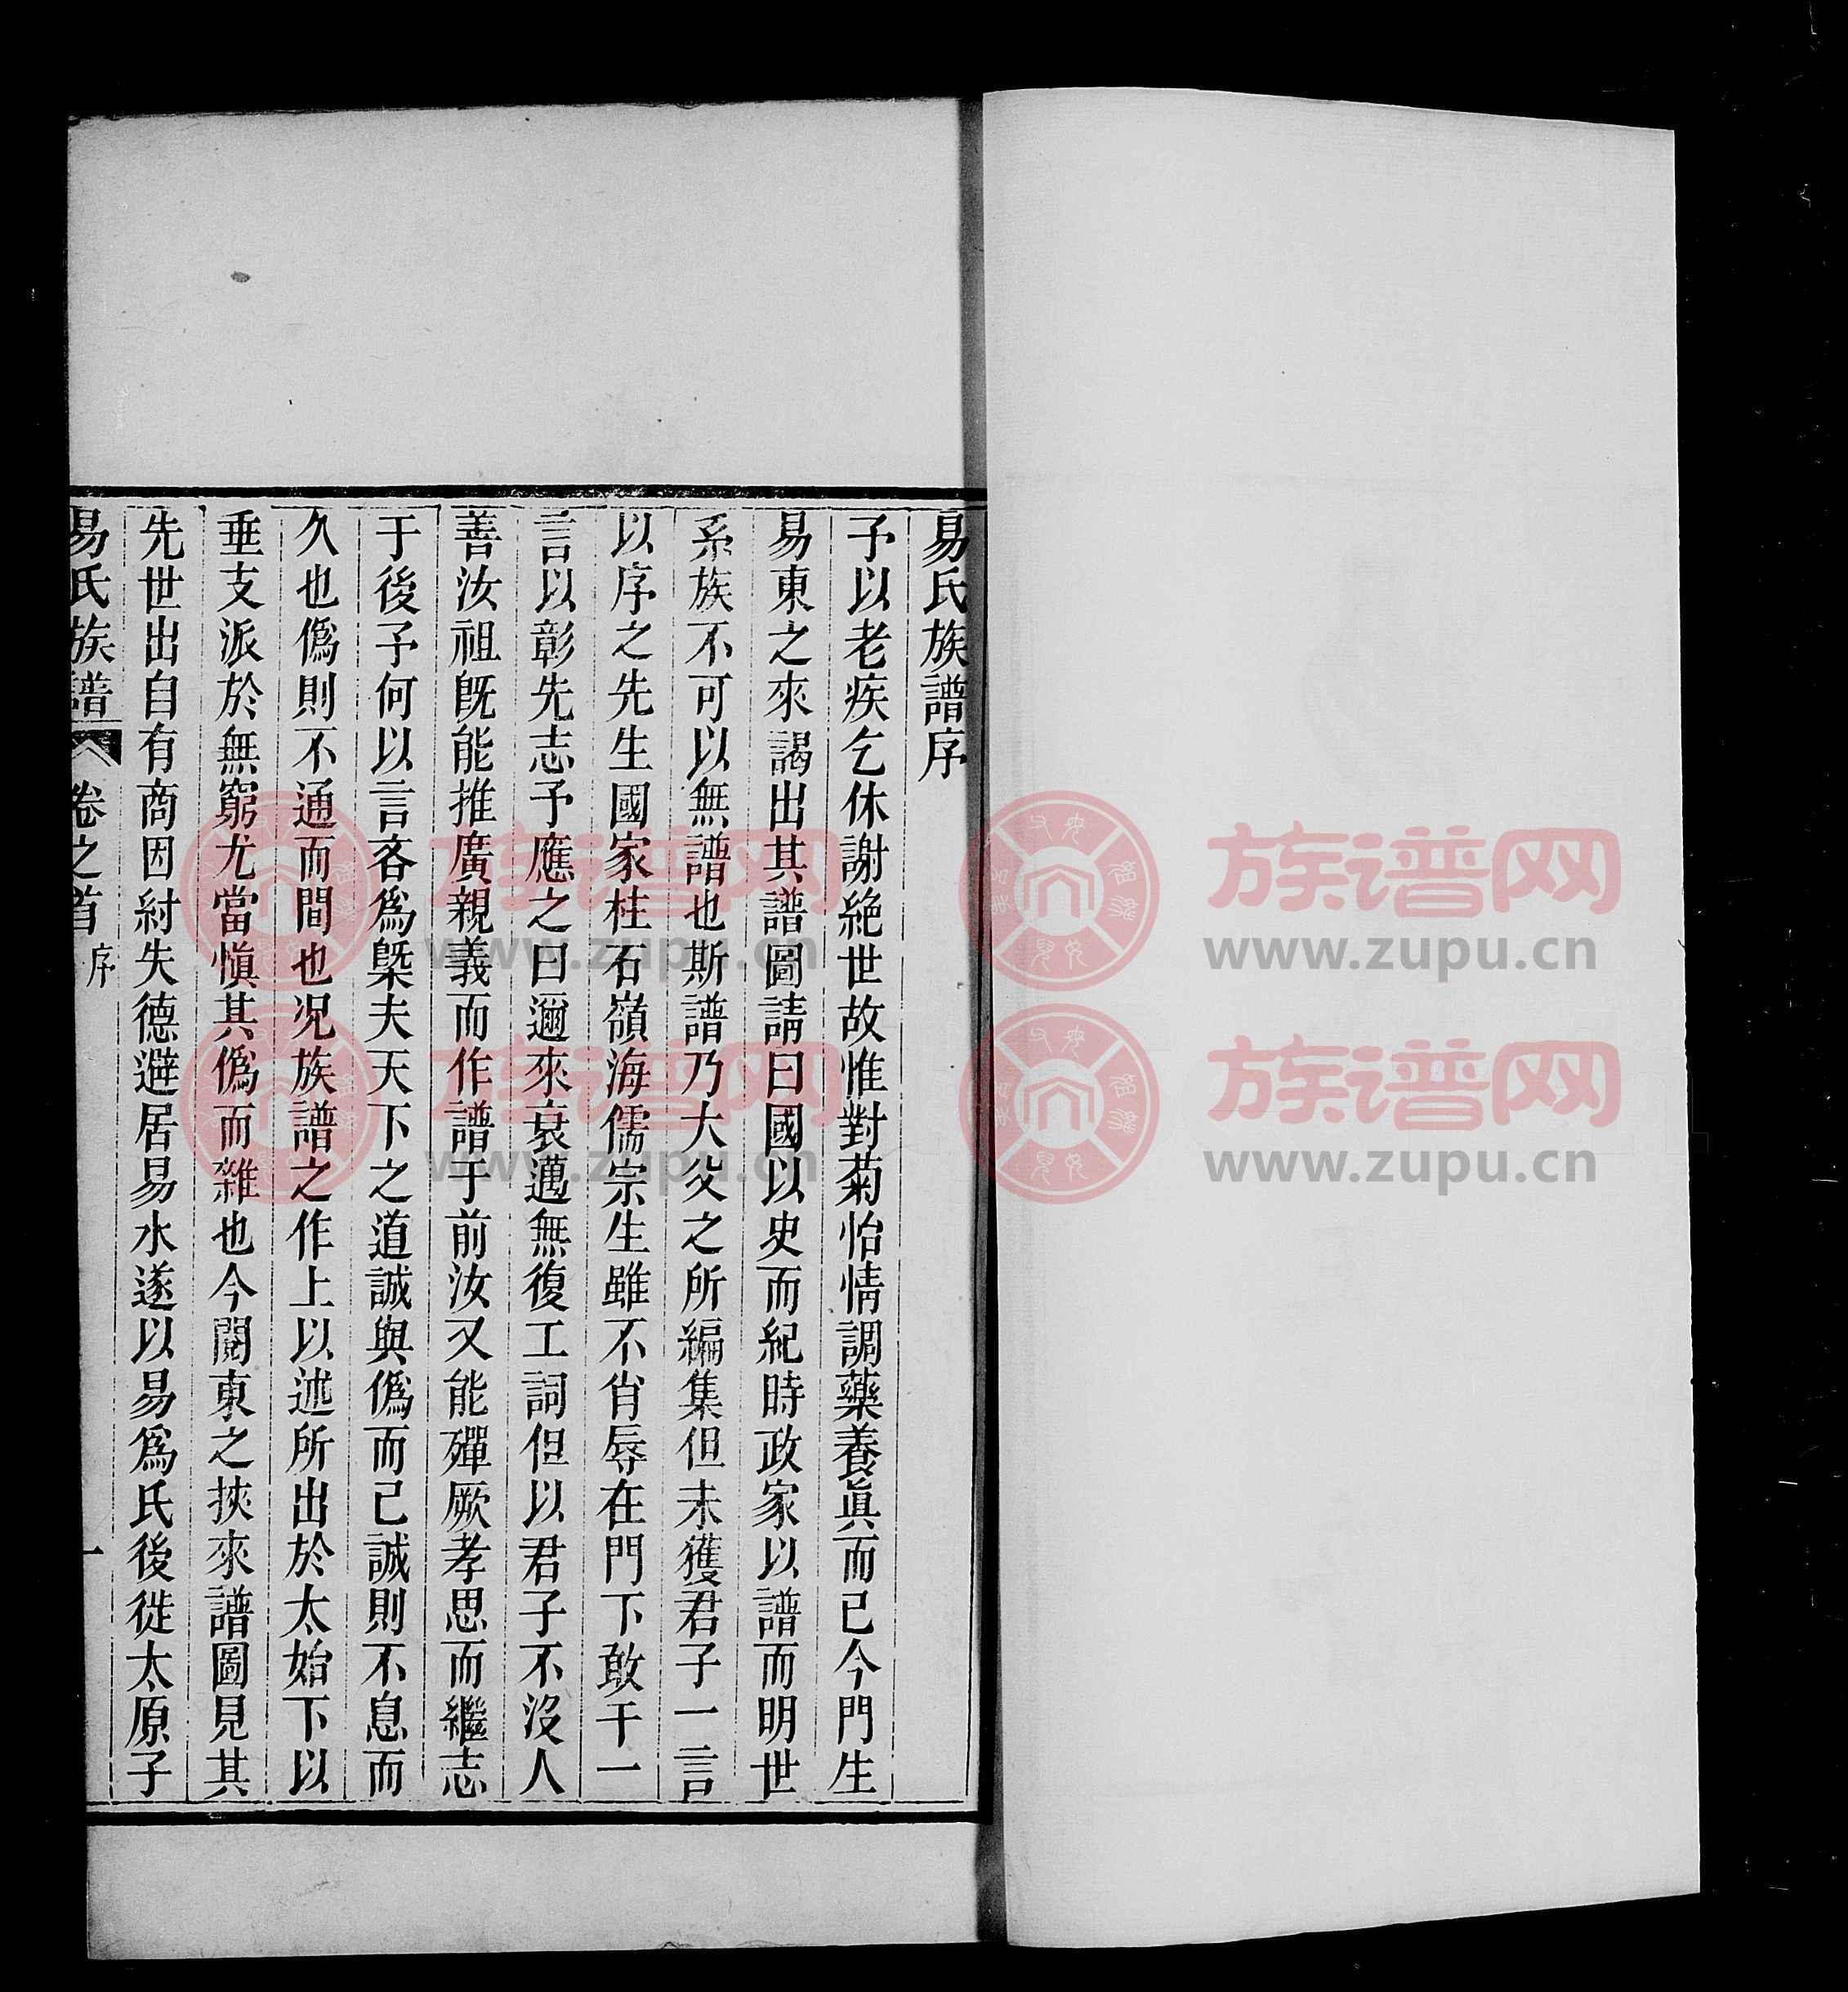 易氏族譜序
予以老疾乞休謝絶世故惟對菊怡情調藥養眞而已今門生
易東之來謁出其譜圖請曰國以史而紀時政家以譜而明世
系族不可以無譜也斯譜乃大父之所編集但未獲君子一言
以序之先生國家柱石嶺海儒宗生雖不肖辱在門下敢干一
言以彰先志予應之曰邇來衰邁無復工詞但以君子不沒人
善汝祖旣能推廣親義而作譜于前汝又能殫厥孝思而繼志
于後予何以言吝爲槩夫天下之道誠與僞而己誠則不息而
久也僞則不通而間也况族譜之作上以述所出於太始下以
垂支派於無窮尤當愼其僞而雜也今閱東之挾來譜圖見其
先世出自有商因紂失德避居易水遂以易爲氏後徙太原子
易氏族譜 卷之首 序 一
族谱网
www.zupu.cn
族谱网
www.zupu.cn
族谱网
www.zupu.cn
族谱网
www.zupu.cn